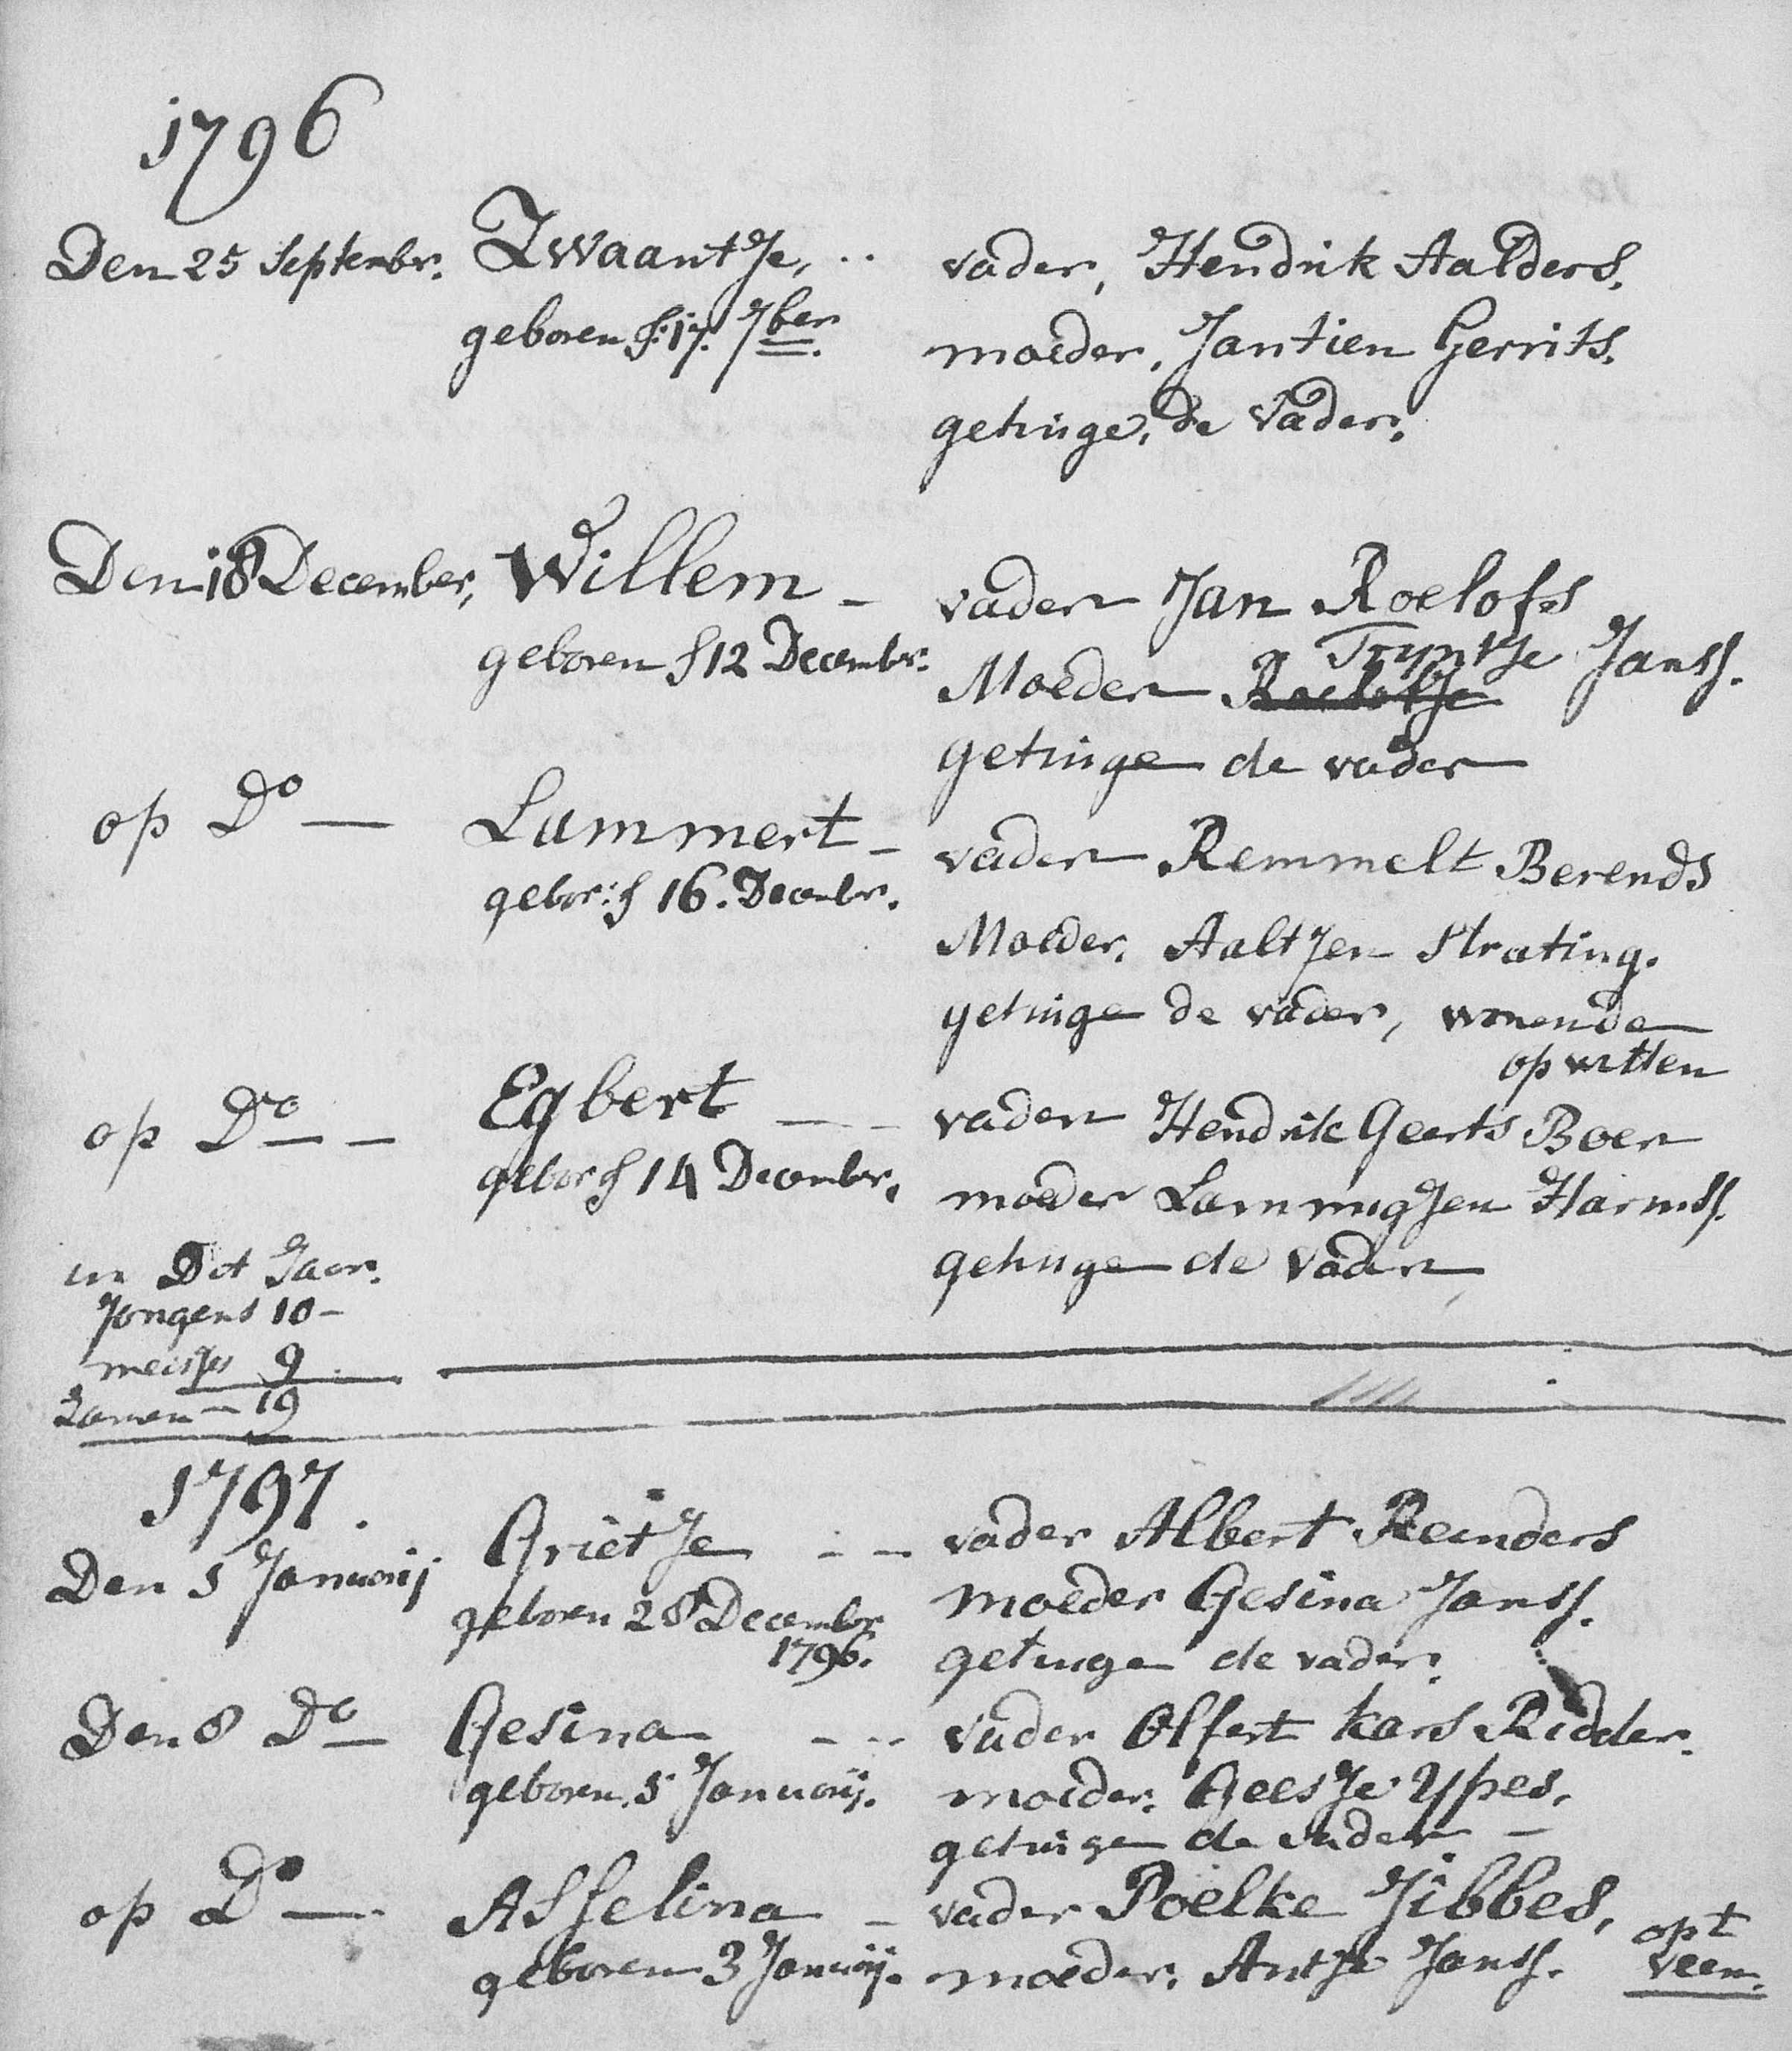 1796
Den 25 Septembr. Zwaantje, ..
geboren d. 17. 7ber.
vader, Hendrik Aalders.
moeder, Jantien Gerrits.
getuige, de Vader.
Den 18 December, Willem –
geboren d 12 Decembr.
vader Jan Roelofs
Tryntje Janss.
Moeder Roelofje
getuige de vader
op Do — Lammert –
gebor: d 16. Decembr.
vader Remmelt Berends
Moeder. Aaltjen Strating.
getuige de vader, wonende
op witten
op Do – – Egbert – –
gebor d 14 Decembr.
vader Hendrik Geerts Boer
moeder Lammigjen Harmss.
getuige de Vader
in Dit Jaar.
Jongens 10 –
meisjes 9
Zamen – 19
1797.
Den 5 Januarij Grietje – –
geboren 28 Decembr
1796.
vader Albert Reinders
moeder Gesina Janss.
getuige de vader.
Den 8 Do – Gesina – –
geboren 5 Januarij.
vader Olfert Kars Ridder.
moeder. Geesje Ypes.
getuige de vader –
op Do — Asselina –
geboren 3 Januarij.
vader Poelke Jibbes,
moeder. Antje Janss.
op t
veen.